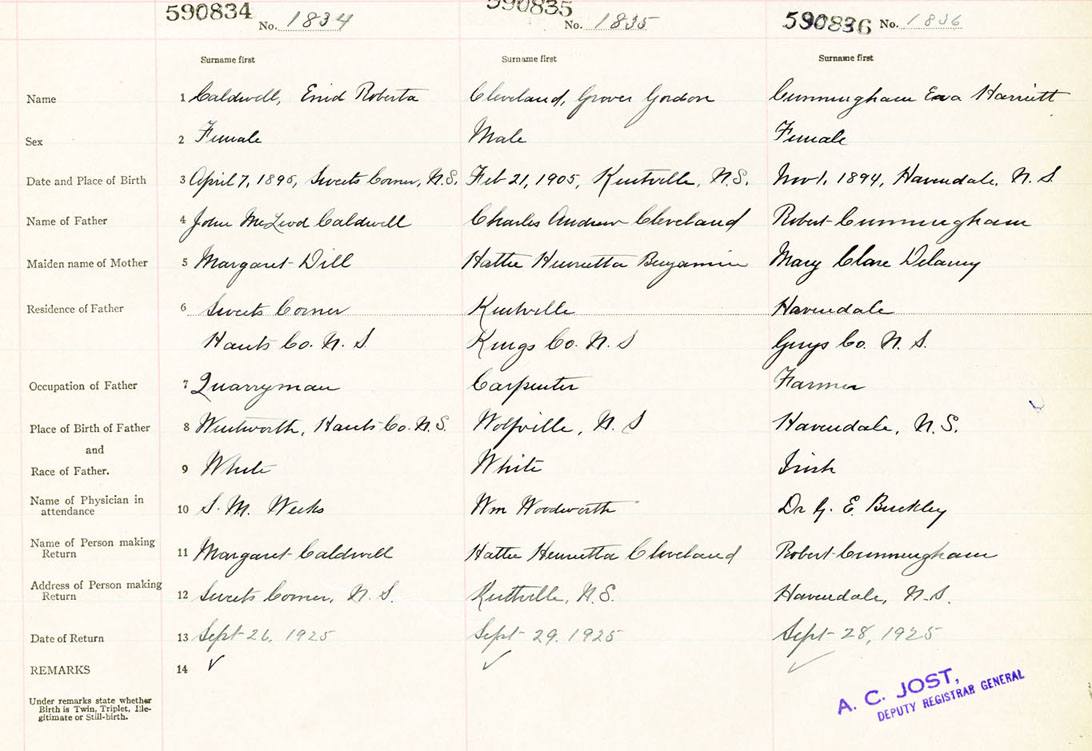 590834 No. 1834 590835 No. 1835 590836 No. 1836
Surname first Surname first Surname first
Name 1 Caldwell, Enid Roberta Cleveland, Grover Gordon Cunningham Eva Harriett
Sex 2 Female Male Female
Date and Place of Birth 3 April 7, 1895, Sweets Corner, N.S. Feb 21, 1905, Kentville, N.S. Nov 1, 1894, Havendale, N.S
Name of Father 4 John McLeod Caldwell Charles Andrew Cleveland Robert Cunningham
Maiden name of Mother 5 Margaret Dill Hattie Henrietta Benjamin Mary Clare Delaney
Residence of Father 6 Sweets Corner Kentville Havendale
Hants Co. N.S Kings Co. N.S Guys Co. N.S.
Occupation of Father 7 Quarryman Carpenter Farmer
Place of Birth of Father 8 Wentworth, Hants Co. N.S. Wolfville, N.S Havendale, N.S.
and
Race of Father. 9 White White Irish
Name of Physician in
attendance 10 S. M. Weeks Wm Woodworth Dr G. E. Buckley
Name of Person making
Return 11 Margaret Caldwell Hattie Henrietta Cleveland Robert Cunningham
Address of Person making
Return 12 Sweets Corner, N.S. Kentville, N.S. Havendale, N.S.
Date of Return 13 Sept 26, 1925 Sept 29. 1925 Sept 28, 1925
REMARKS 14 ✓ ✓ ✓
Under remarks state whether
Birth is Twin, Triplet, Ille-
gitimate or Still-birth.
A. C. JOST,
DEPUTY REGISTRAR GENERAL